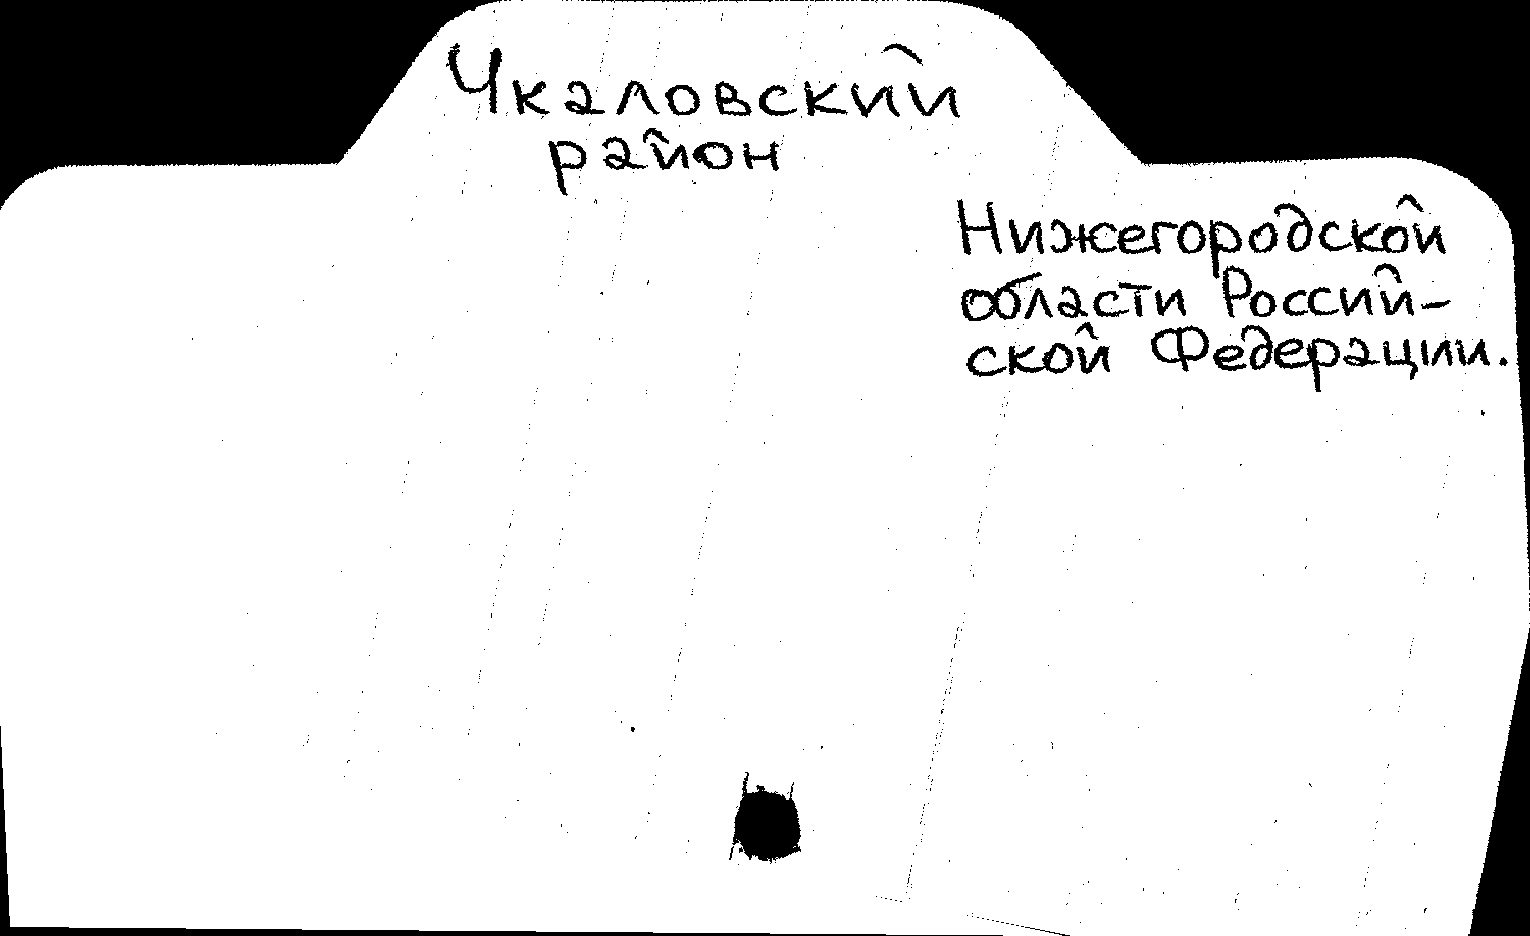 Чкаловский
район
Нижегородской
области Россий-
ской Федерации.